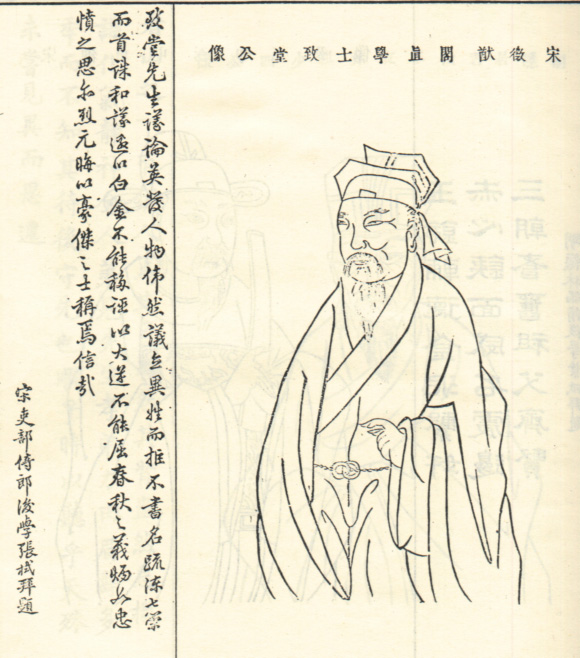 宋徵猷閣直學士致堂公像
致堂先生議論英發人物偉然議立異姓而拒不書名疏陳七策
而首誅和議遺以白金不能移誣以大逆不能屈春秋之義炳如忠
憤之思尔烈元晦以豪傑之士稱焉信哉
宋吏部侍郎後學張栻拜題